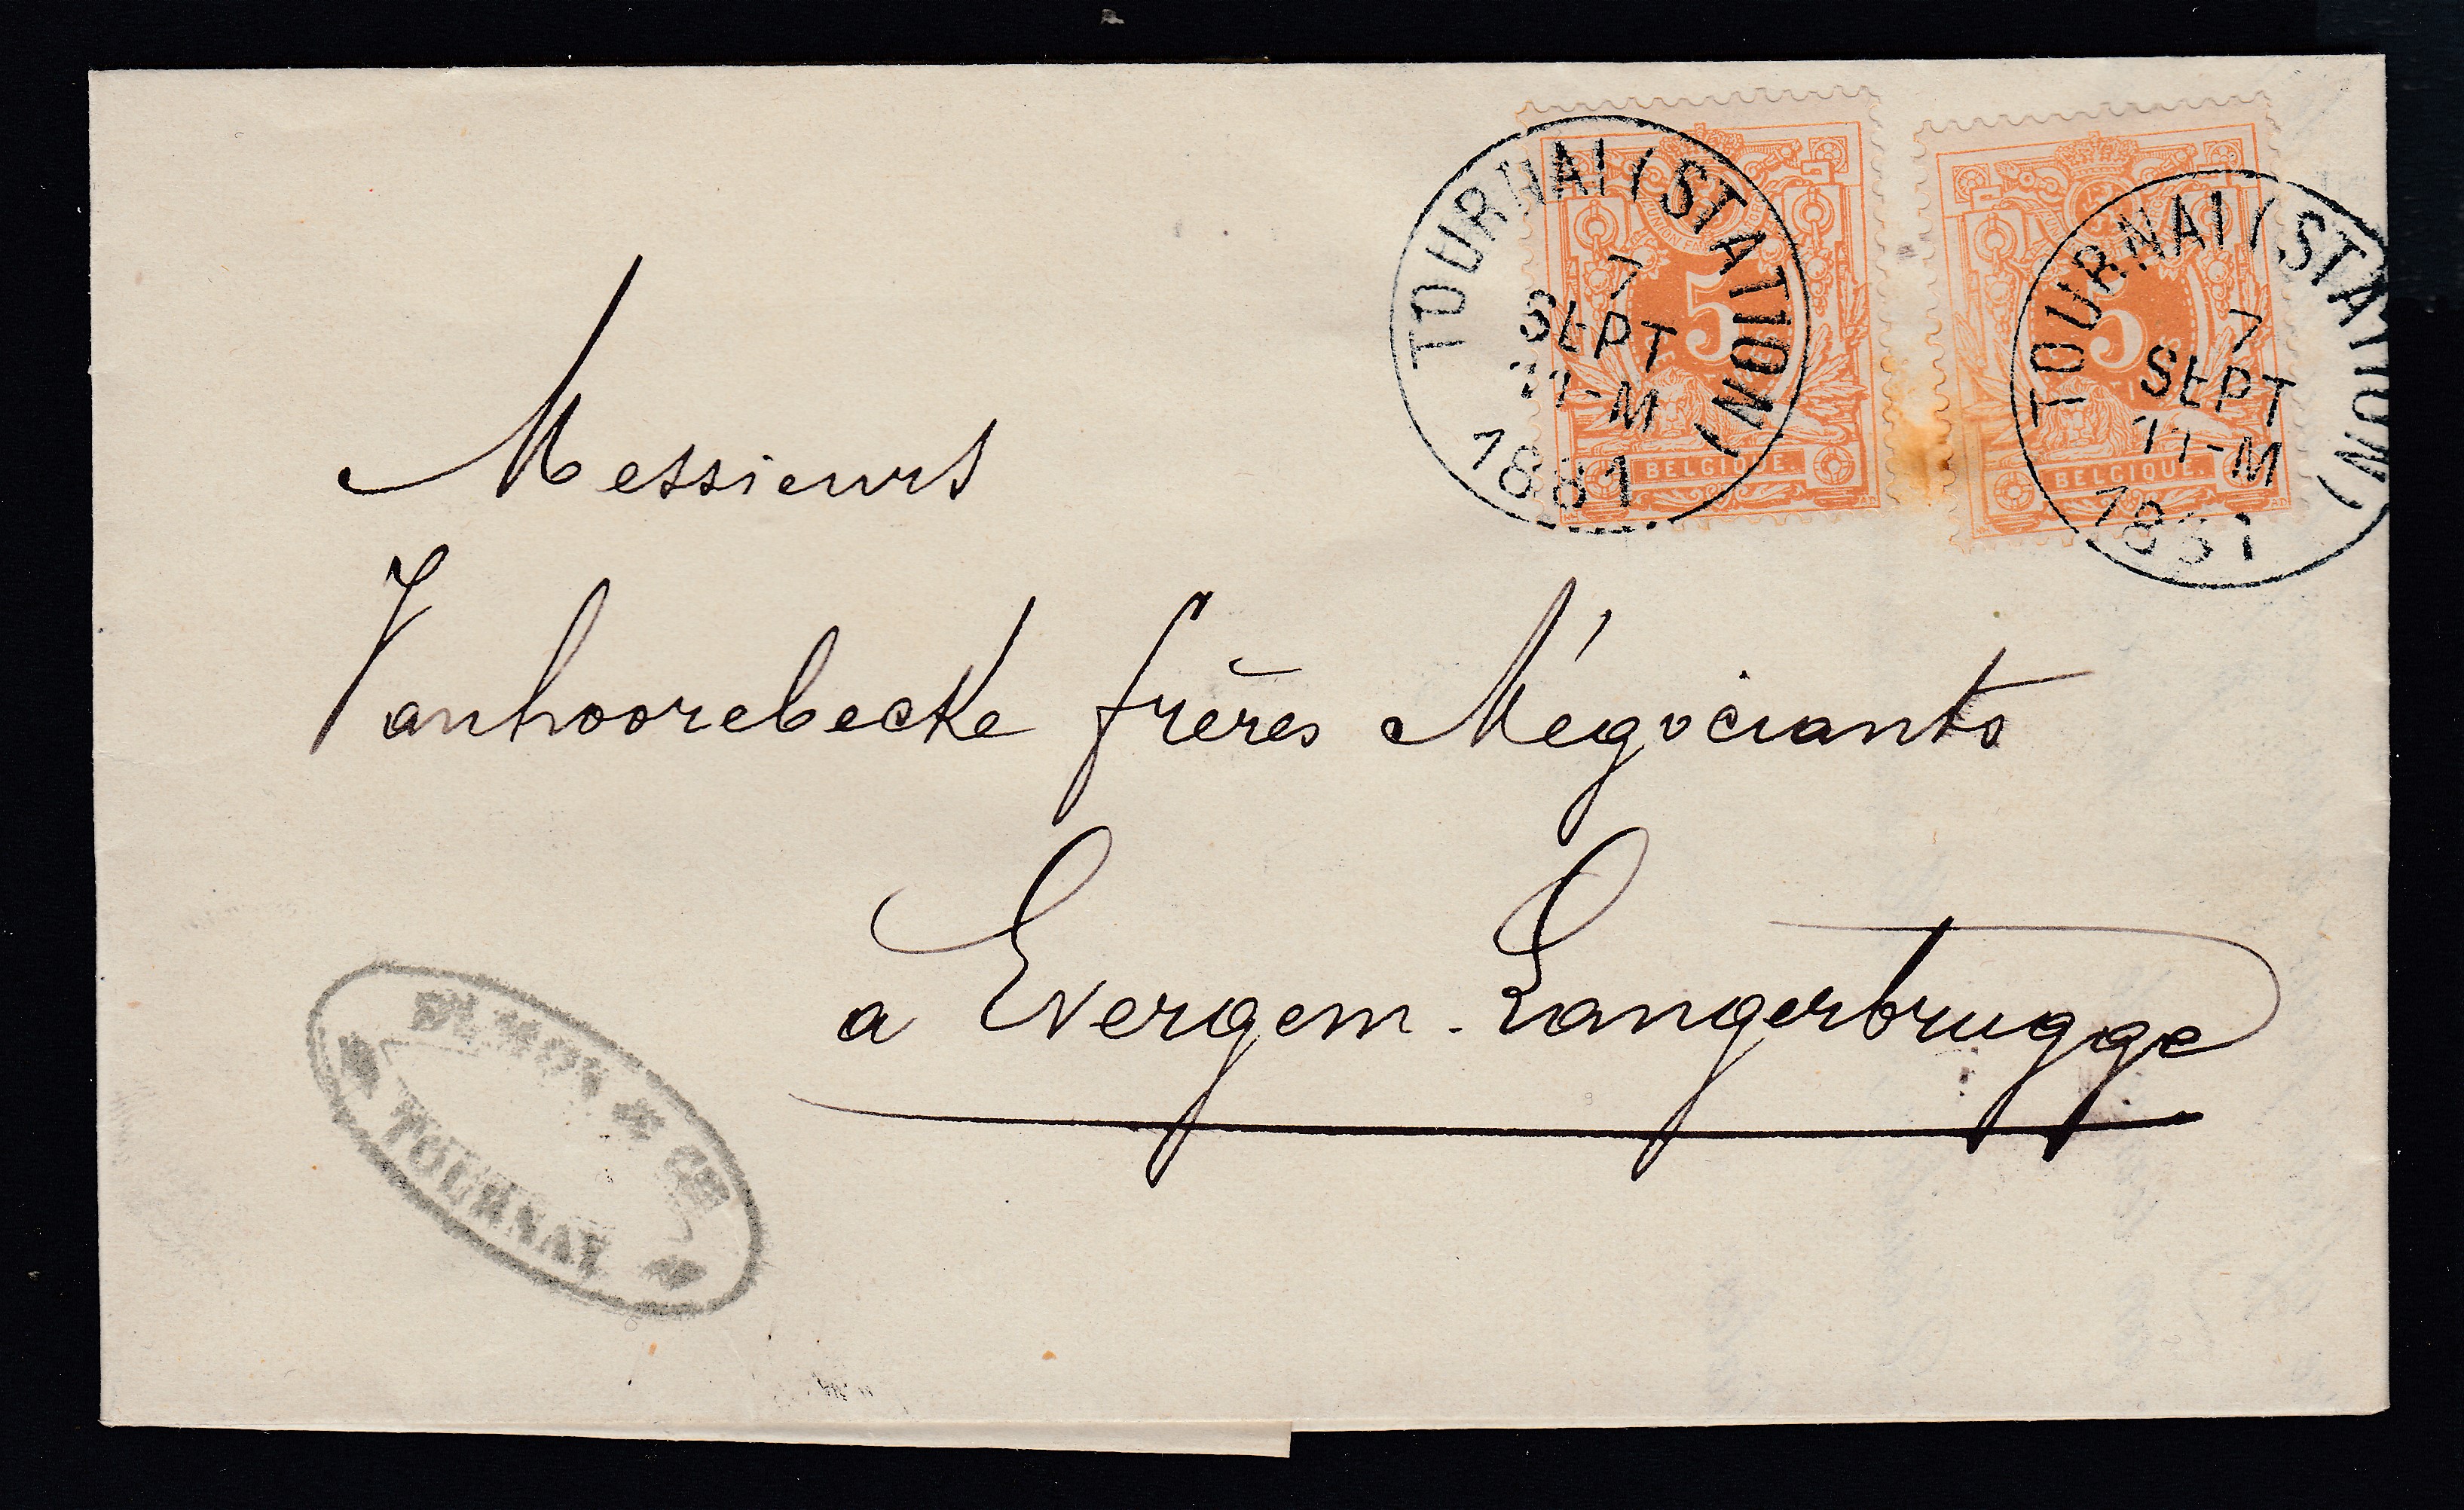 TOURNAI (STATION)
7
SEPT
11-M
1881
5
BELGIQUE.
TOURNAI (STATION)
7
SEPT
11-M
1881
5
BELGIQUE.
Messieurs
Vanhoorebecke frères Négociants
a Evergem-Langerbrugge
& Cie
TOURNAY